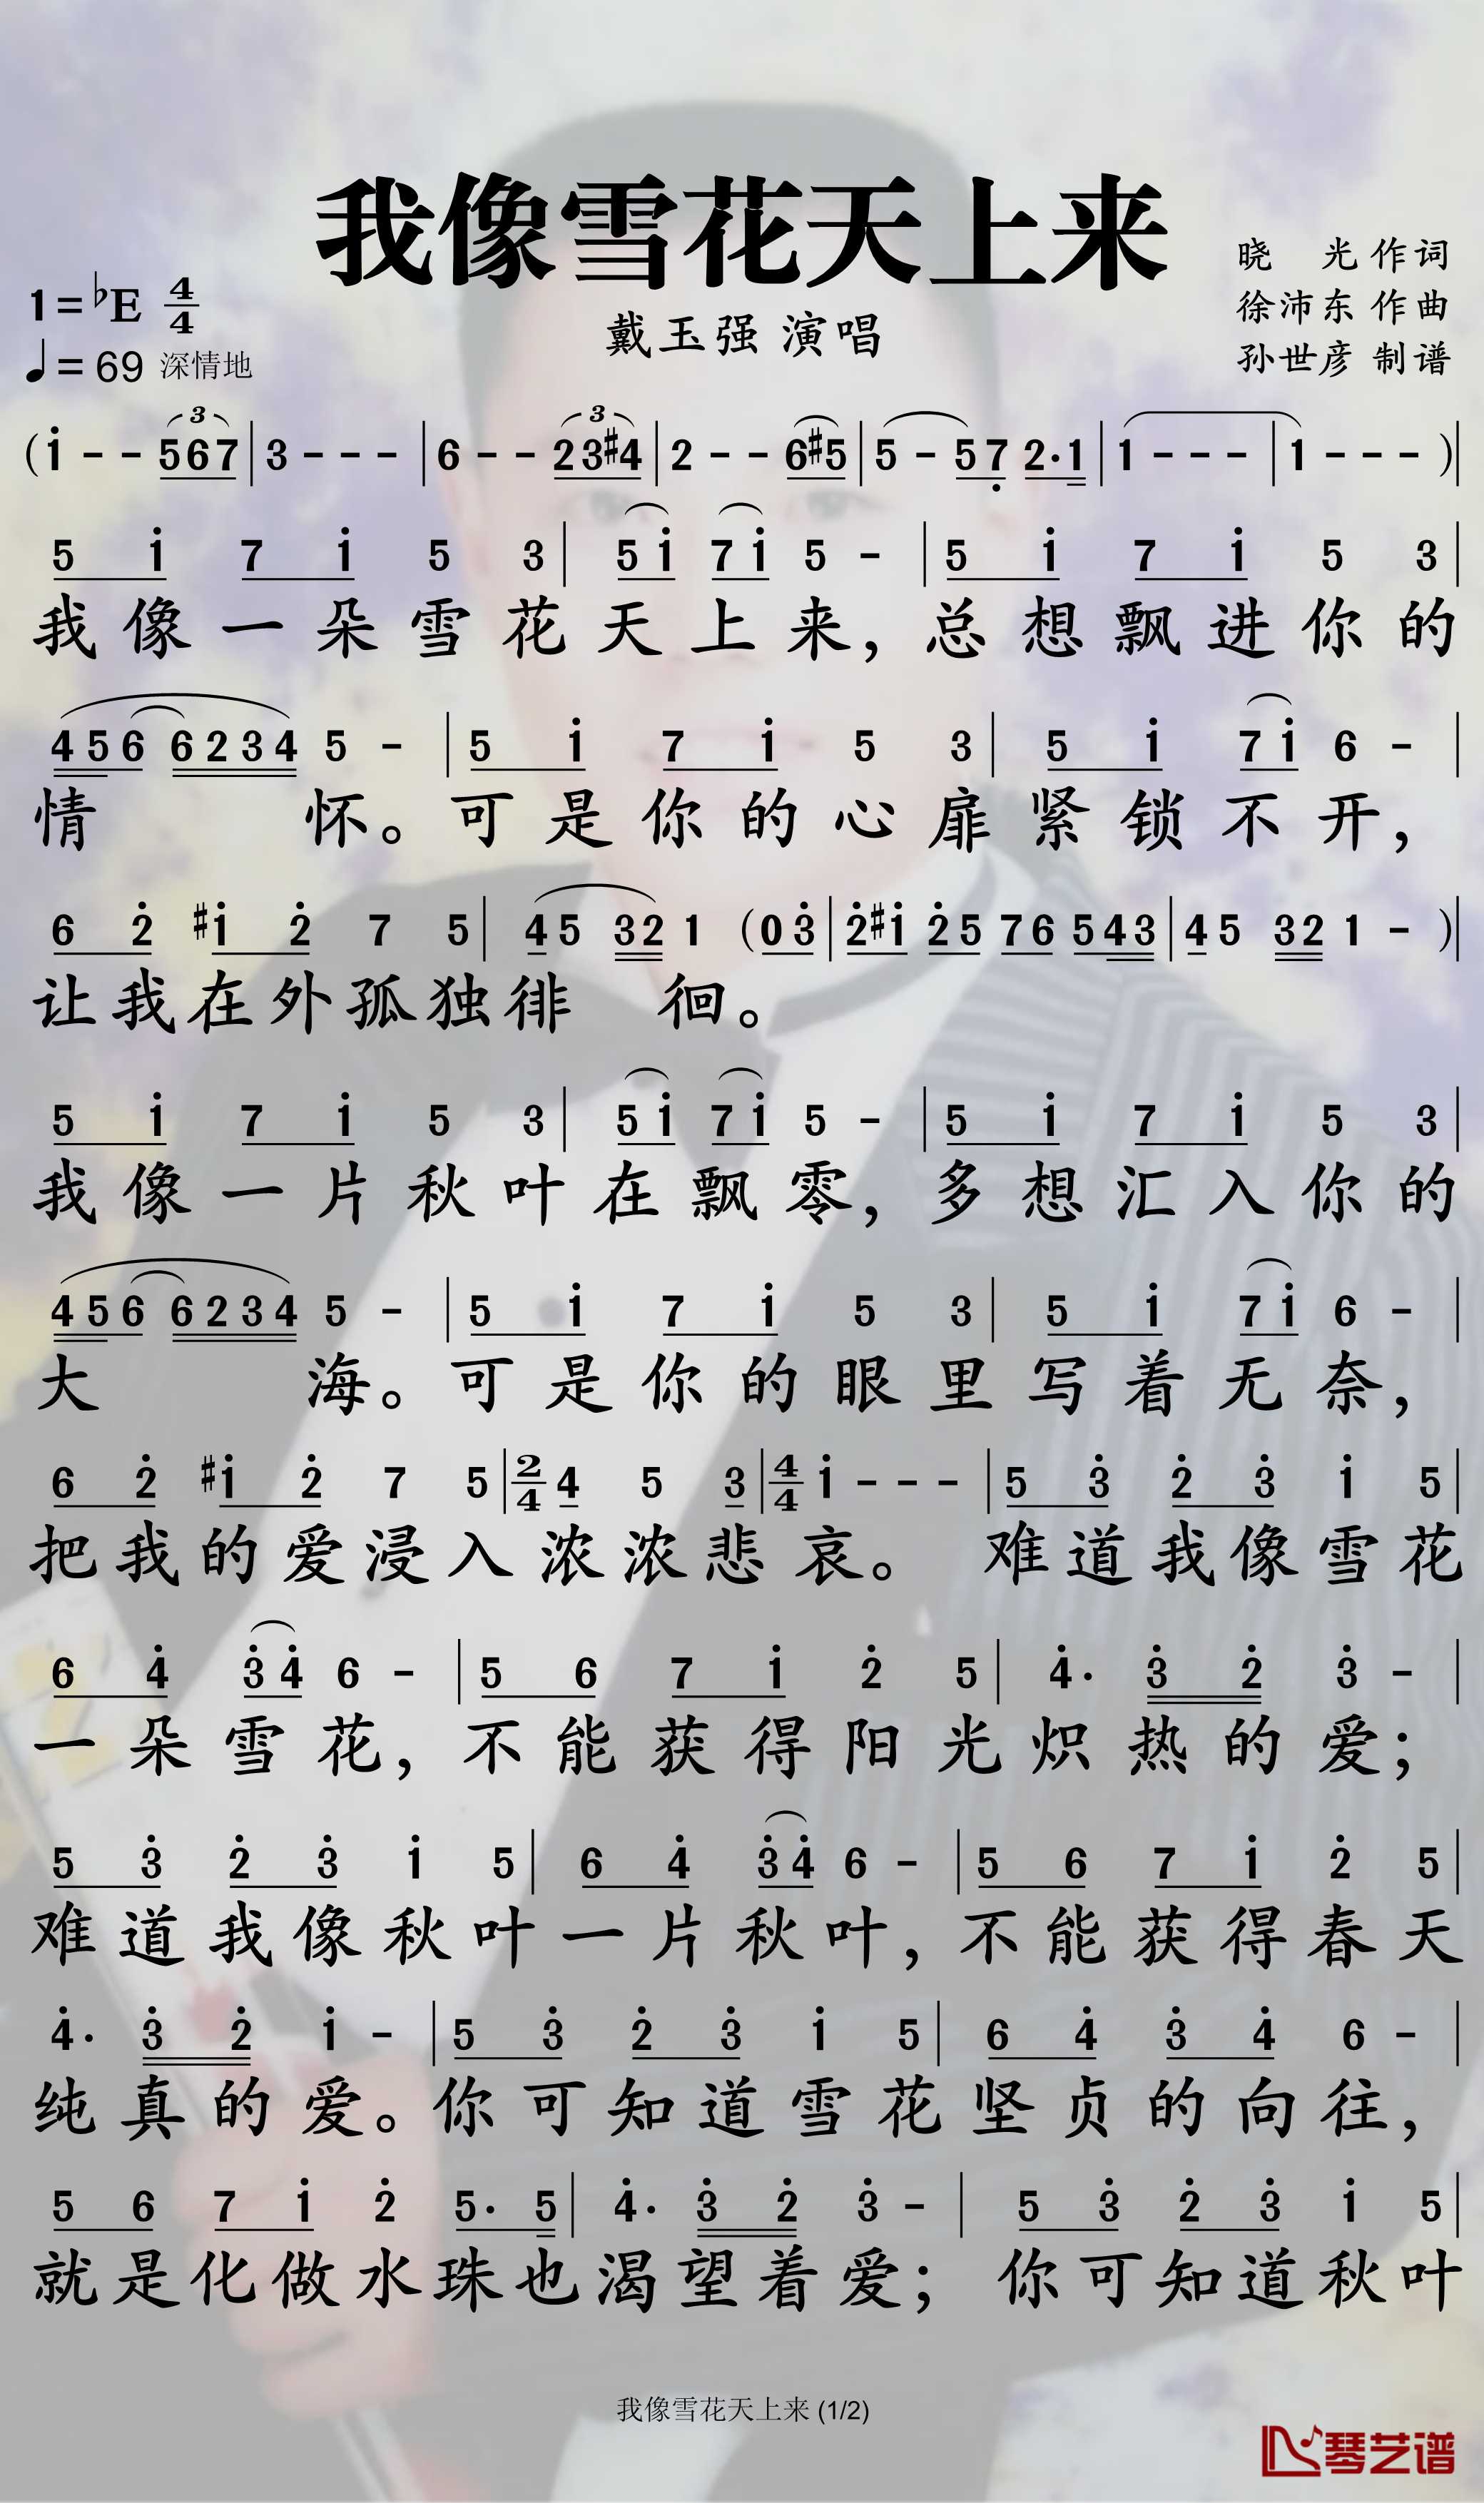 我像雪花天上来
晓 光 作词
1=♭E 4/4
徐沛东 作曲
戴玉强 演唱
♩=69 深情地
孙世彦 制谱
(i - - 5 6 7 | 3 - - - | 6 - - 2 3 #4 | 2 - - 6 #5 | 5 - 5 7 2· 1 | 1 - - - | 1 - - - )|
5 i 7 i 5 3 | 5 i 7 i 5 - | 5 i 7 i 5 3 |
我像一朵雪花天上来，总想飘进你的
4 5 6 6 2 3 4 5 - | 5 i 7 i 5 3 | 5 i 7 i 6 - |
情 怀。可是你的心扉紧锁不开，
6 2 #i 2 7 5 | 4 5 3 2 1 (0 3 | 2 #i 2 5 7 6 5 4 3 | 4 5 3 2 1 - )|
让我在外孤独徘 徊。
5 i 7 i 5 3 | 5 i 7 i 5 - | 5 i 7 i 5 3 |
我像一片秋叶在飘零，多想汇入你的
4 5 6 6 2 3 4 5 - | 5 i 7 i 5 3 | 5 i 7 i 6 - |
大 海。可是你的眼里写着无奈，
6 2 #i 2 7 5 | 2/4 4 5 3 | 4/4 i - - - | 5 3 2 3 i 5 |
把我的爱浸入浓浓悲哀。 难道我像雪花
6 4 3 4 6 - | 5 6 7 i 2 5 | 4· 3 2 3 - |
一朵雪花，不能获得阳光炽热的爱；
5 3 2 3 i 5 | 6 4 3 4 6 - | 5 6 7 i 2 5 |
难道我像秋叶一片秋叶，不能获得春天
4· 3 2 i - | 5 3 2 3 i 5 | 6 4 3 4 6 - |
纯真的爱。你可知道雪花坚贞的向往，
5 6 7 i 2 5· 5 | 4· 3 2 3 - | 5 3 2 3 i 5 |
就是化做水珠也渴望着爱； 你可知道秋叶
我像雪花天上来 (1/2)
琴艺谱